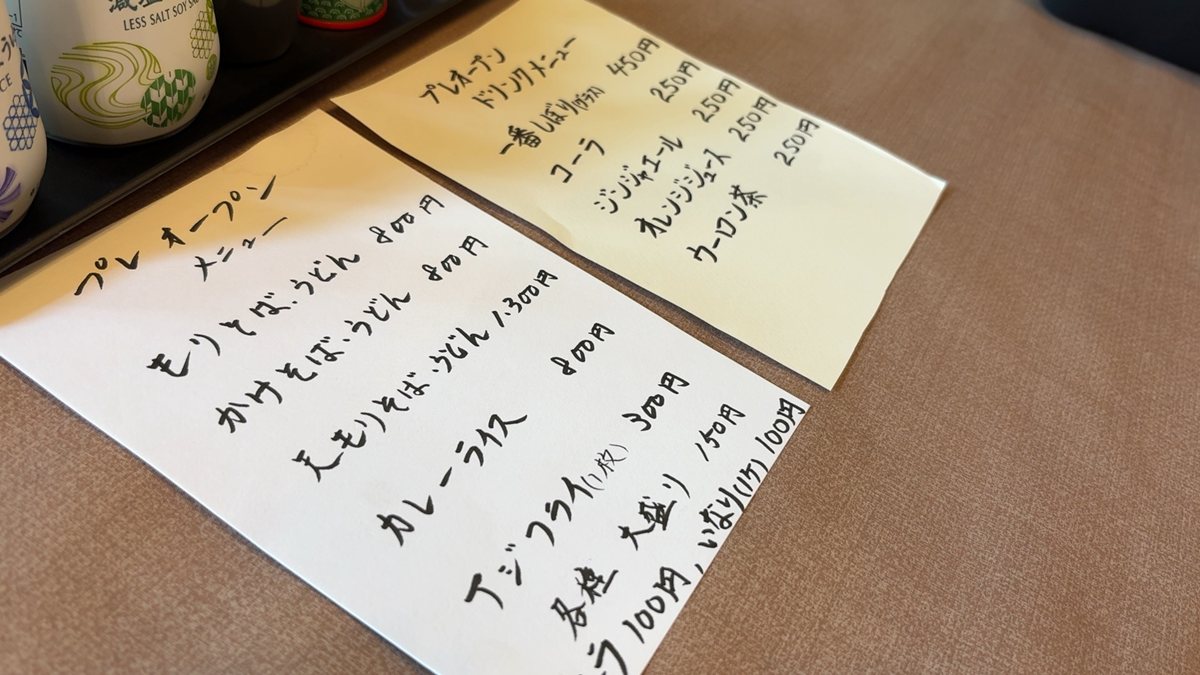 減塩
LESS SALT SOY
CE
プレオープン
メニュー
もりそば・うどん 800円
かけそば・うどん 800円
天もりそば・うどん 1.300円
カレーライス 800円
アジフライ(1枚) 300円
各種 大盛り 150円
ラ 100円、いなり(1ケ) 100円
プレオープン
ドリンクメニュー
一番しぼり(グラス) 450円
コーラ 250円
ジンジャエール 250円
オレンジジュース 250円
ウーロン茶 250円